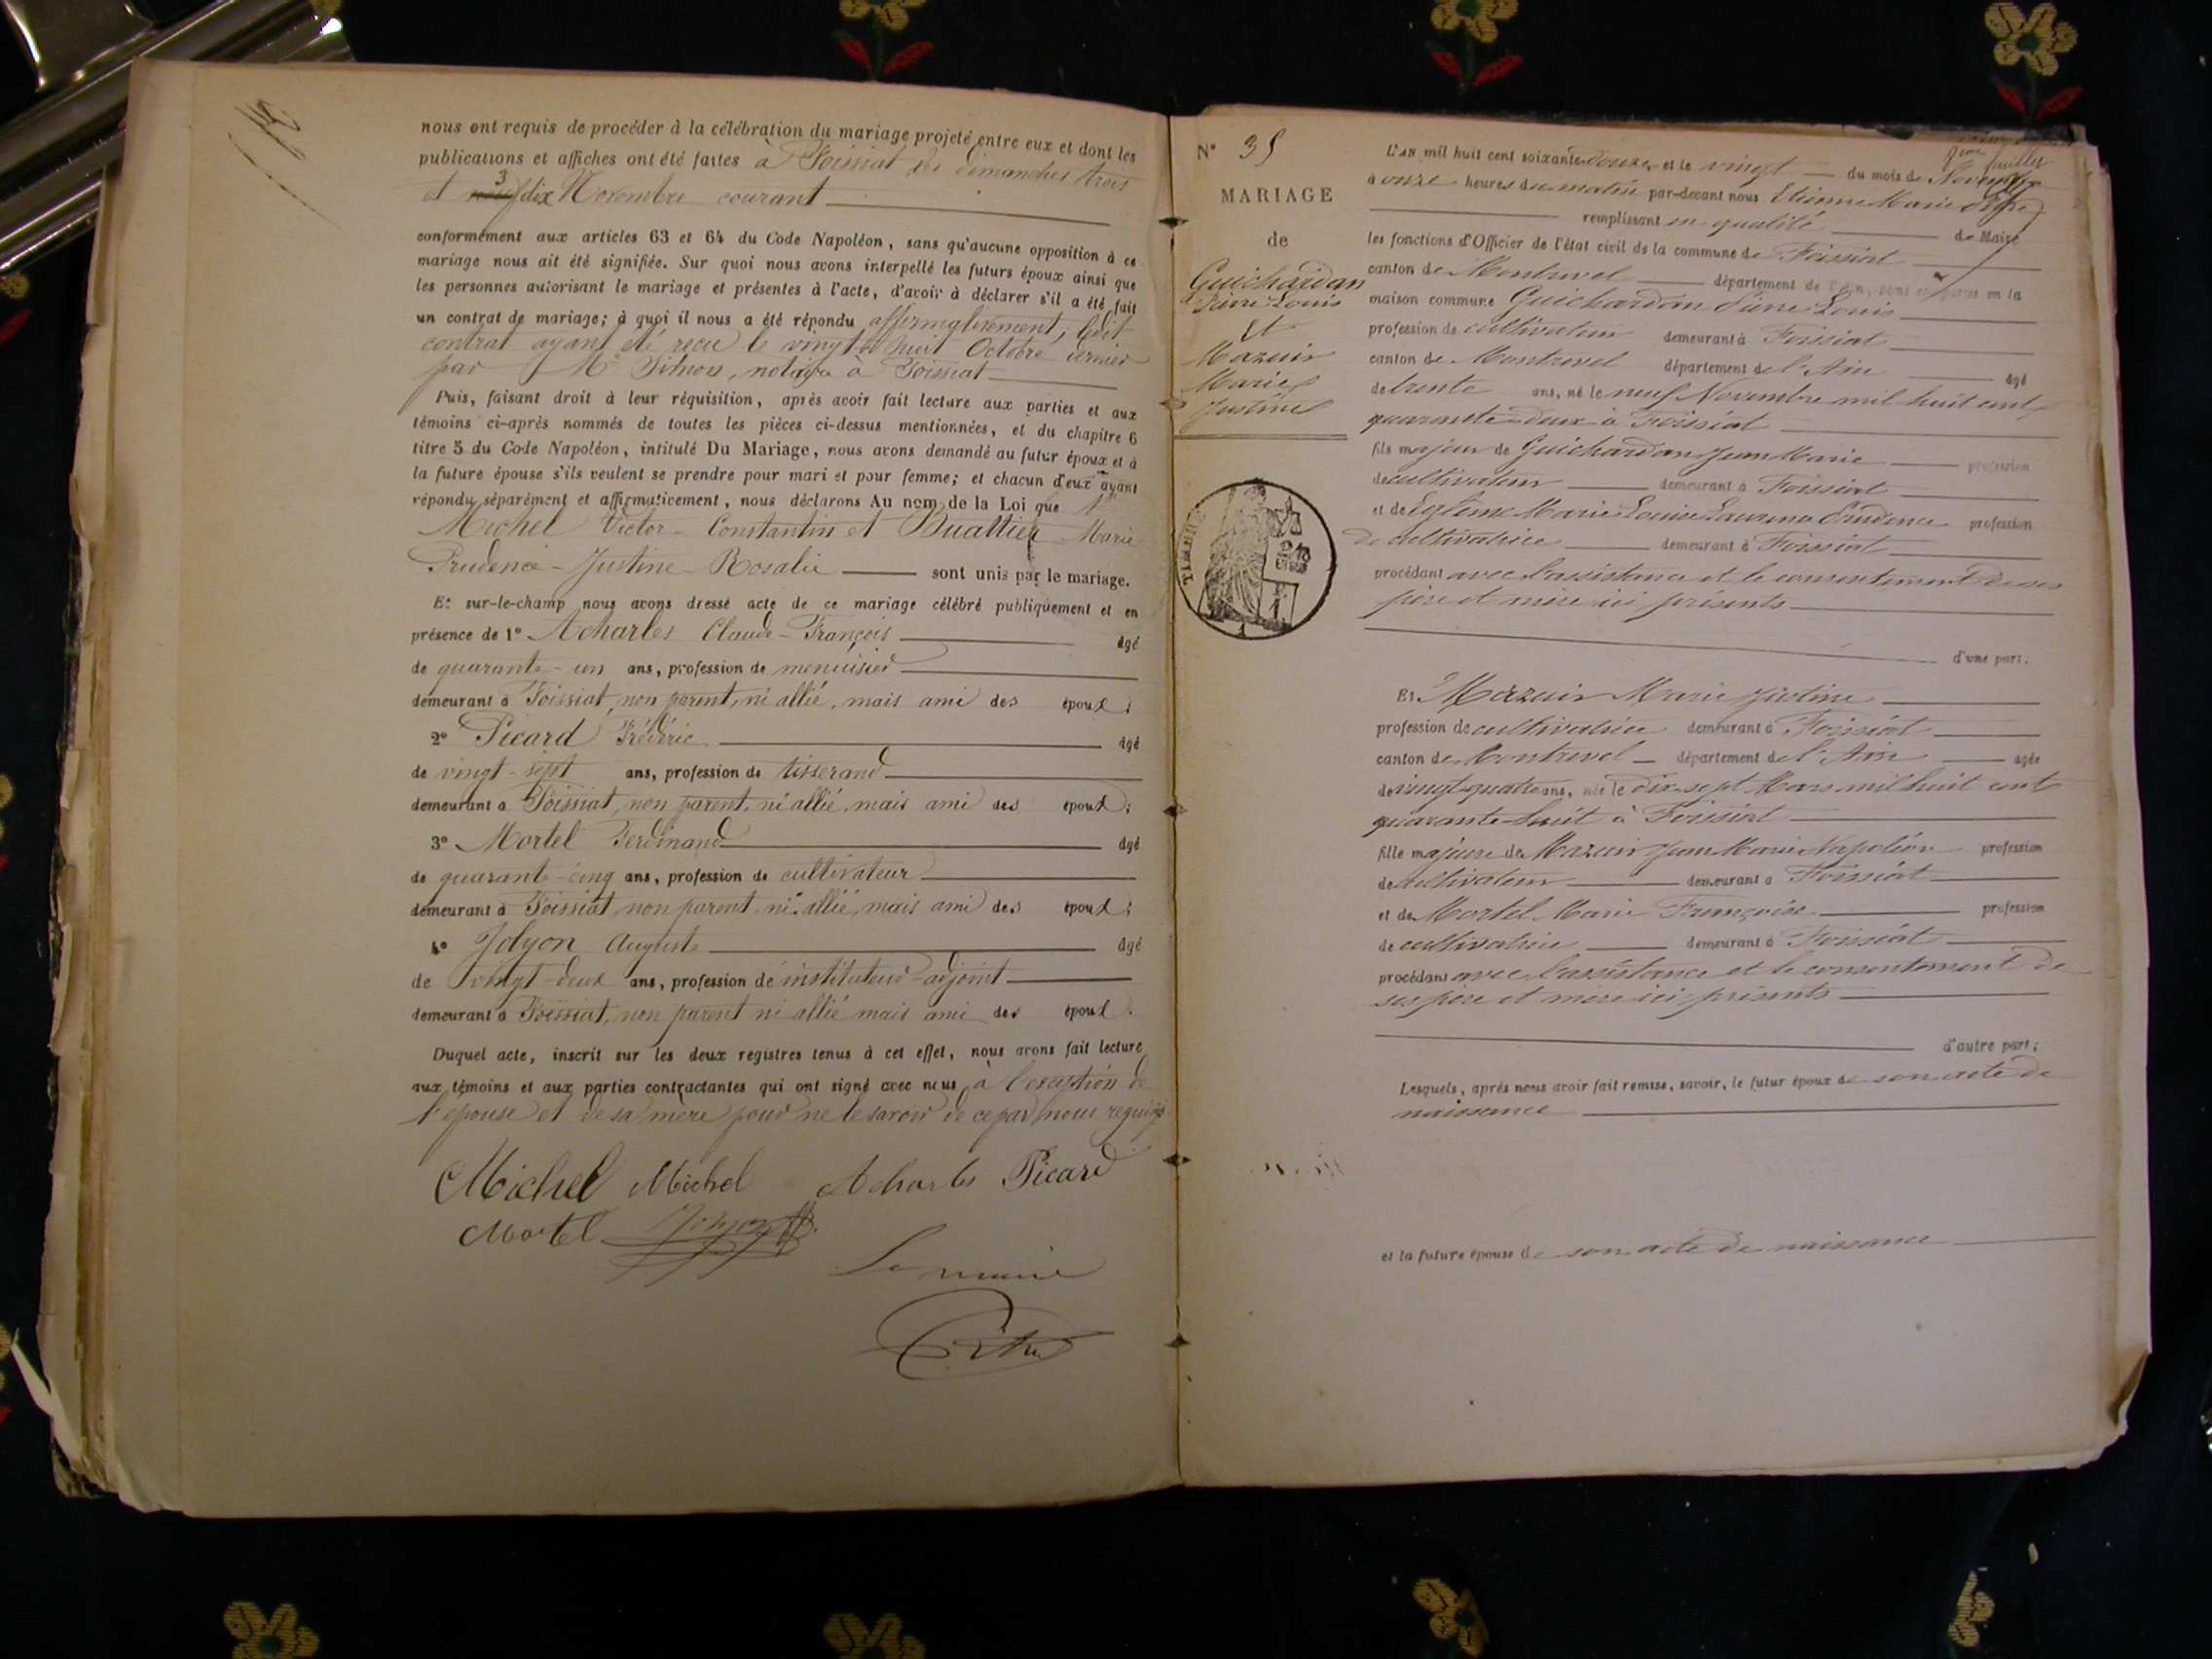 nous ont requis de procéder à la célébration du mariage projeté entre eux et dont les
publications et affiches ont été faites à Foissiat les dimanches trois
et dix Novembre courant
conformément aux articles 63 et 64 du Code Napoléon, sans qu'aucune opposition à ce
mariage nous ait été signifiée. Sur quoi nous avons interpellé les futurs époux ainsi que
les personnes autorisant le mariage et présentes à l'acte, d'avoir à déclarer s'il a été fait
un contrat de mariage; à quoi il nous a été répondu affirmativement, ledit
contrat ayant été reçu le vingt huit Octobre dernier
par Me notaire à Foissiat
Puis, faisant droit à leur réquisition, après avoir fait lecture aux parties et aux
témoins ci-après nommés de toutes les pièces ci-dessus mentionnées, et du chapitre 6
titre 5 du Code Napoléon, intitulé Du Mariage, nous avons demandé au futur époux et à
la future épouse s'ils veulent se prendre pour mari et pour femme; et chacun d'eux ayant
répondu séparément et affirmativement, nous déclarons Au nom de la Loi que
Michel Victor-Constantin et Buattier Marie
Prudence-Justine-Rosalie sont unis par le mariage.
Et sur-le-champ nous avons dressé acte de ce mariage célébré publiquement et en
présence de 1° Acharles Claude-François âgé
de quarante-un ans, profession de menuisier
demeurant à Foissiat, non parent, ni allié, mais ami des époux;
2° Picard Frédéric âgé
de vingt-sept ans, profession de tisserand
demeurant à Foissiat, non parent, ni allié mais ami des époux;
3° Mortel Ferdinand âgé
de quarante-cinq ans, profession de cultivateur
demeurant à Foissiat, non parent, ni allié, mais ami des époux;
4° Jolyon Auguste âgé
de vingt-deux ans, profession de instituteur-adjoint
demeurant à Foissiat, non parent ni allié mais ami des époux.
Duquel acte, inscrit sur les deux registres tenus à cet effet, nous avons fait lecture
aux témoins et aux parties contractantes qui ont signé avec nous à l'exception de
l'épouse et de sa mère pour ne le savoir de ce par nous requises
Michel Michel Acharles Picard
Mortel Jolyon
Le maire
N° 35
MARIAGE
de
Guichardan
Pierre Louis
Et
Mazuir
Marie
Justine
TIMBRE
L'an mil huit cent soixante douze, et le vingt du mois de Novembre
à onze heures du matin par-devant nous Etienne Marie
remplissant en qualité de Maire
les fonctions d'Officier de l'état civil de la commune de Foissiat
canton de Montrevel département de l'Ain, sont comparus en la
maison commune Guichardan Pierre Louis
profession de cultivateur demeurant à Foissiat
canton de Montrevel département de l'Ain âgé
de trente ans, né le neuf Novembre mil huit cent
quarante-deux à Foissiat
fils majeur de Guichardan Jean Marie profession
de cultivateur demeurant à Foissiat
et de Marie Louise Prudence profession
de cultivatrice demeurant à Foissiat
procédant avec l'assistance et le consentement de ses
père et mère ici présents
d'une part;
Et Mazuir Marie Justine
profession de cultivatrice demeurant à Foissiat
canton de Montrevel département de l'Ain âgée
de vingt-quatre ans, née le dix-sept Mars mil huit cent
quarante-huit à Foissiat
fille majeure de Mazuir Jean Marie Napoléon profession
de cultivateur demeurant à Foissiat
et de Mortel Marie Françoise profession
de cultivatrice demeurant à Foissiat
procédant avec l'assistance et le consentement de
ses père et mère ici présents
d'autre part;
Lesquels, après nous avoir fait remise, savoir, le futur époux de son acte de
naissance
et la future épouse de son acte de naissance